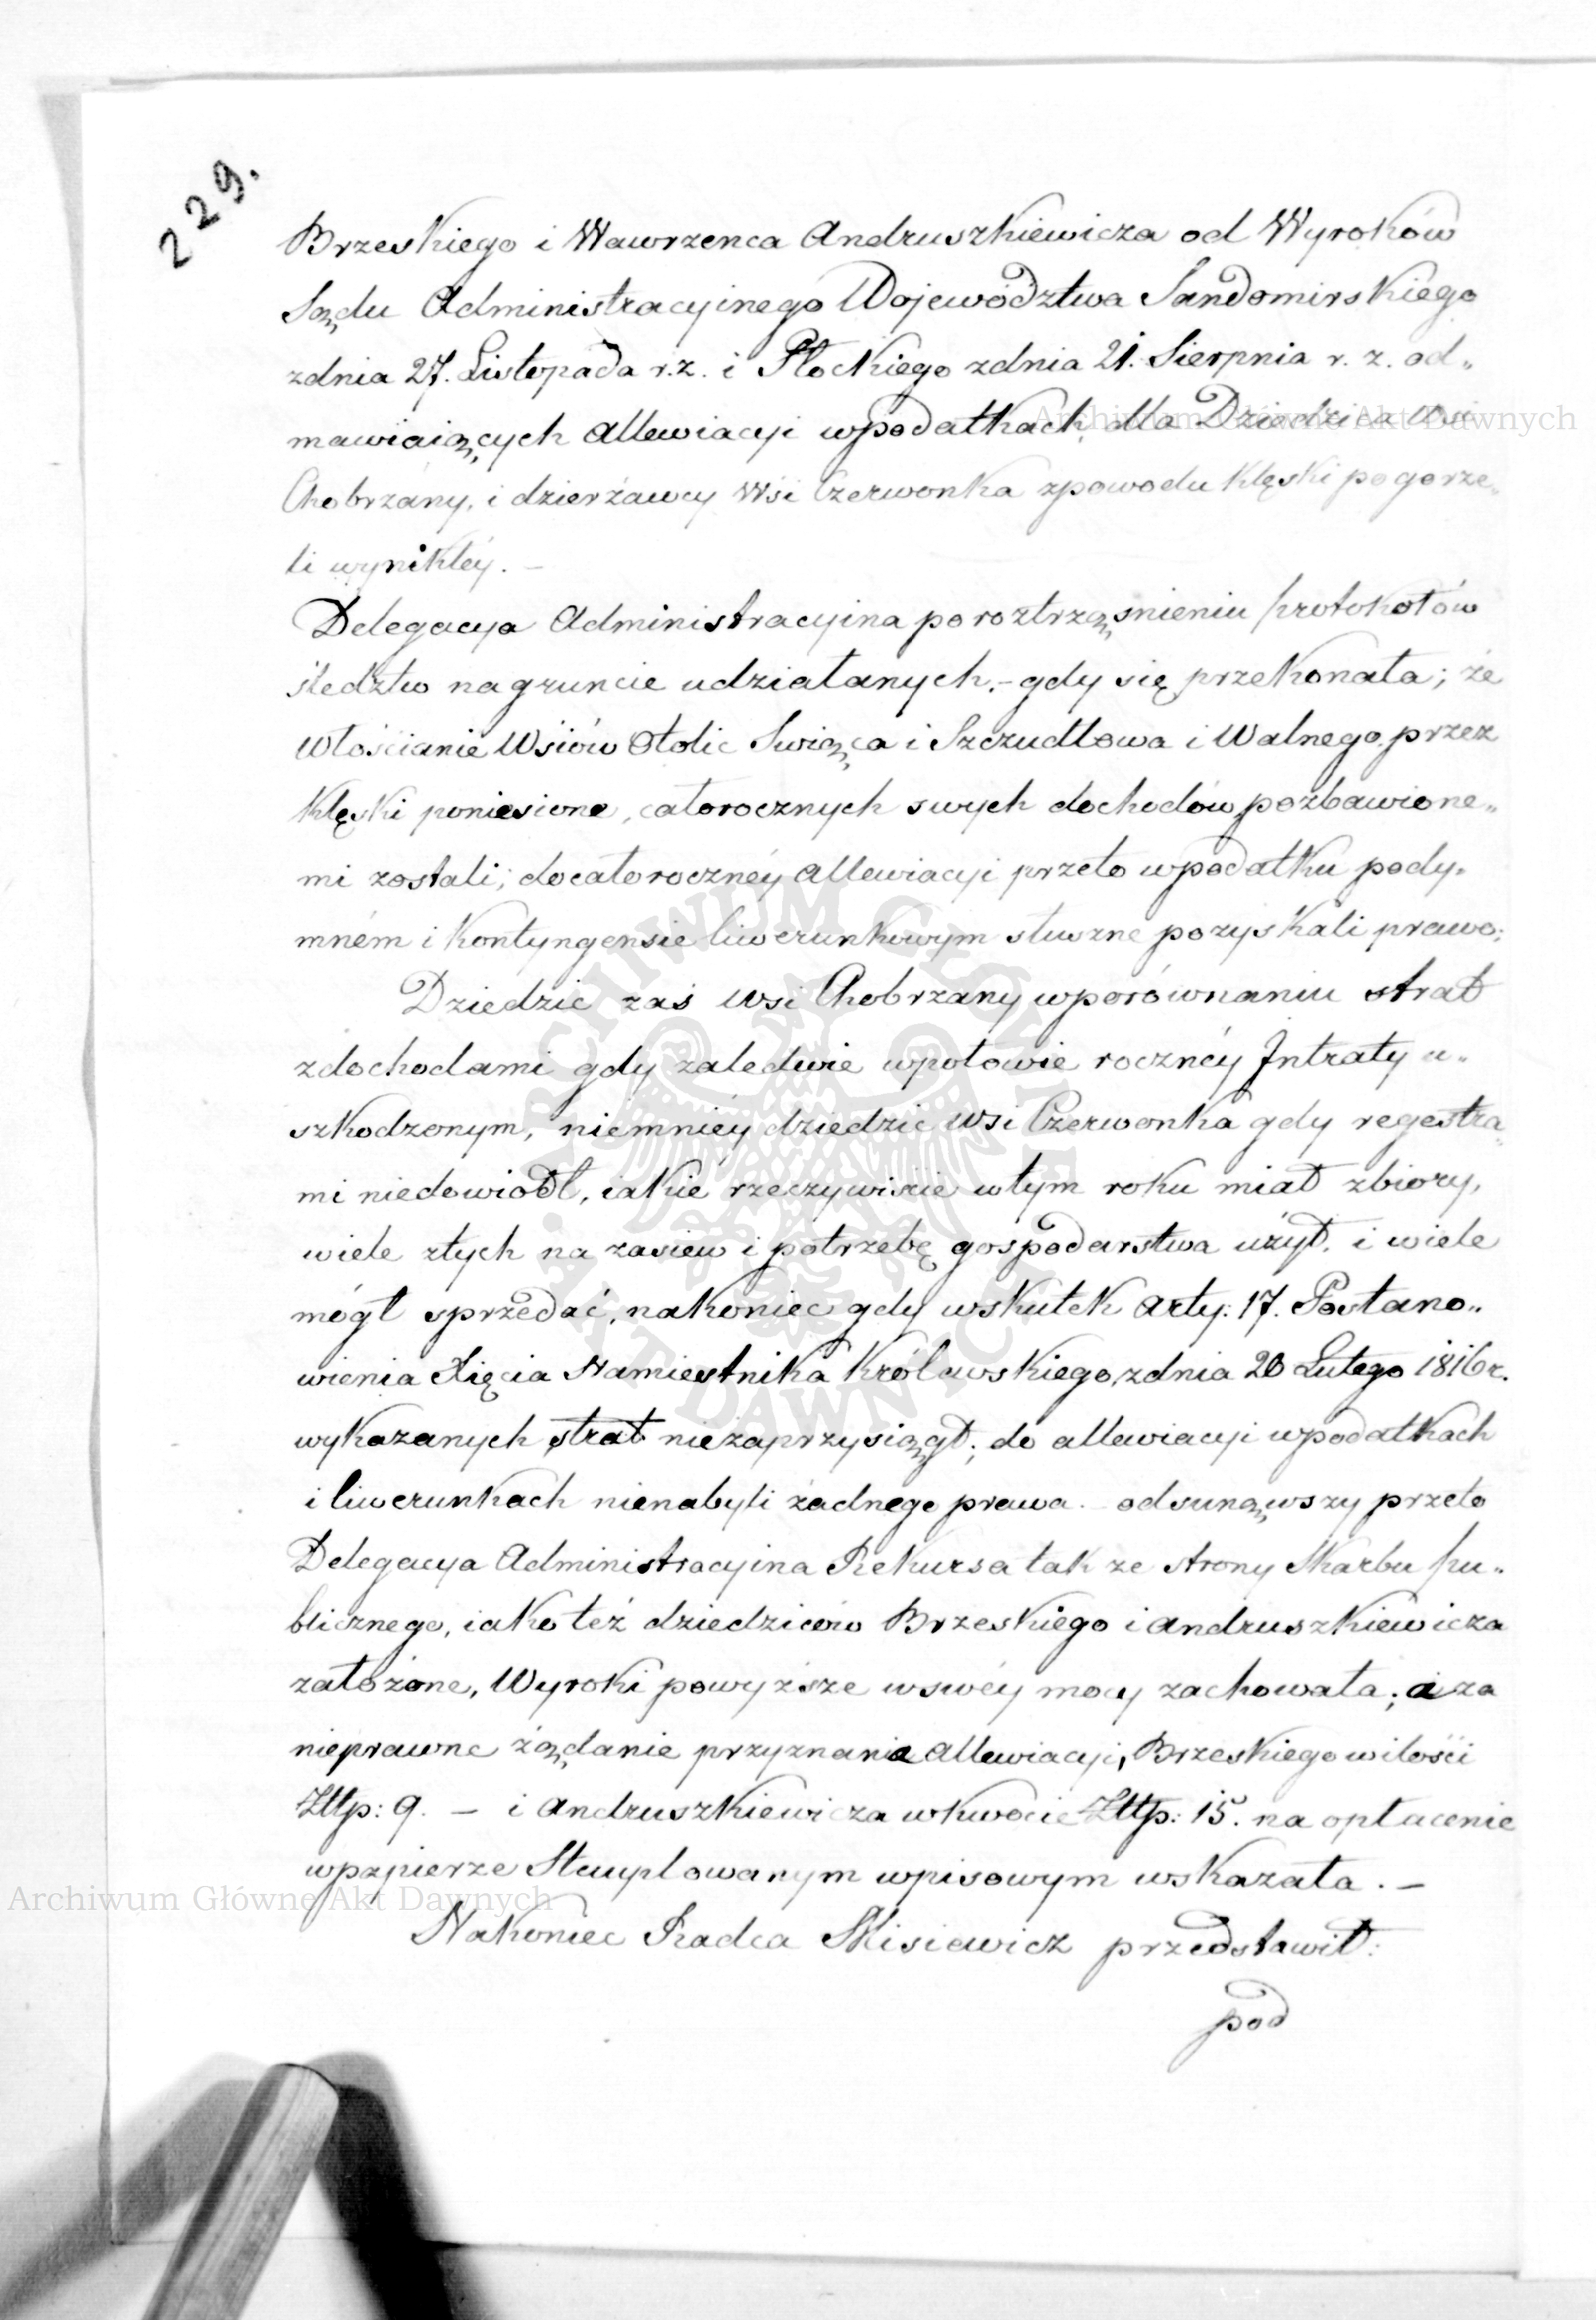 229.
Brzeskiego i Wawrzenca Andruszkiewicza od Wyroków
Sądu Administracyinego Wojewodztwa Sandomirskiego
zdnia 27. Listopada r.z. i Płockiego zdnia 21. Sierpnia r. z. od„
mawiaiących allewiacyi wpodatkach, dla Dziedzica Wsi
Chobrzany, i dzierżawcy Wsi Czerwonka zpowodu klęski pogorze„
li wynikłéy. –
Delegacya Administracyina po roztrząśnieniu protokołów
śledztw na gruncie udziałanych, – gdy się przekonała; że
Włościanie Wsiów Otolic Swiąca i Szczudłowa i Walnego, przez
klęski poniesione, całorocznych swych dochodów pozbawione„
mi zostali; do całoroczney allewiacyi przeto wpodatku pody„
mném i Kontyngensie liwerunkowym słuszne pozyskali prawo;
Dziedzic zaś Wsi Chobrzany wporównaniu strat
zdochodami gdy zaledwie wpołowie roczney Jntraty u„
szkodzonym, niemniéy dziedzic Wsi Czerwonka gdy regestra„
mi niedowiodł, iakie rzeczywiście wtym roku miał zbiory,
wiele ztych na zasiew i potrzebę gospodarstwa użył, i wiele
mógł sprzedać, nakoniec gdy wskutek Arty: 17. Postano„
wienia Xięcia Namiestnika Królewskiego, zdnia 20 Lutego 1816 r.
wykazanych strat niezaprzysiągł; do allewiacyi wpodatkach
i liwerunkach nienabyli żadnego prawa. odsunąwszy przeto
Delegacya Administracyina Rekursa tak ze strony Skarbu pu„
blicznego, iako też dziedziców Brzeskiego i Andruszkiewicza
założone, Wyroki powyższe wswéy mocy zachowała; a za
nieprawne żądanie przyznania allewiacyi, Brzeskiego wilości
Złtp: 9. – i Andruszkiewicza wkwocie Złtp: 15. na opłacenie
wpapierze Stemplowanym wpisowym wskazała. –
Nakoniec Radca Misiewicz przedstawił:
pod
Archiwum Główne Akt Dawnych
Archiwum Główne Akt Dawnych
ARCHIWUM GŁÓWNE AKT DAWNYCH